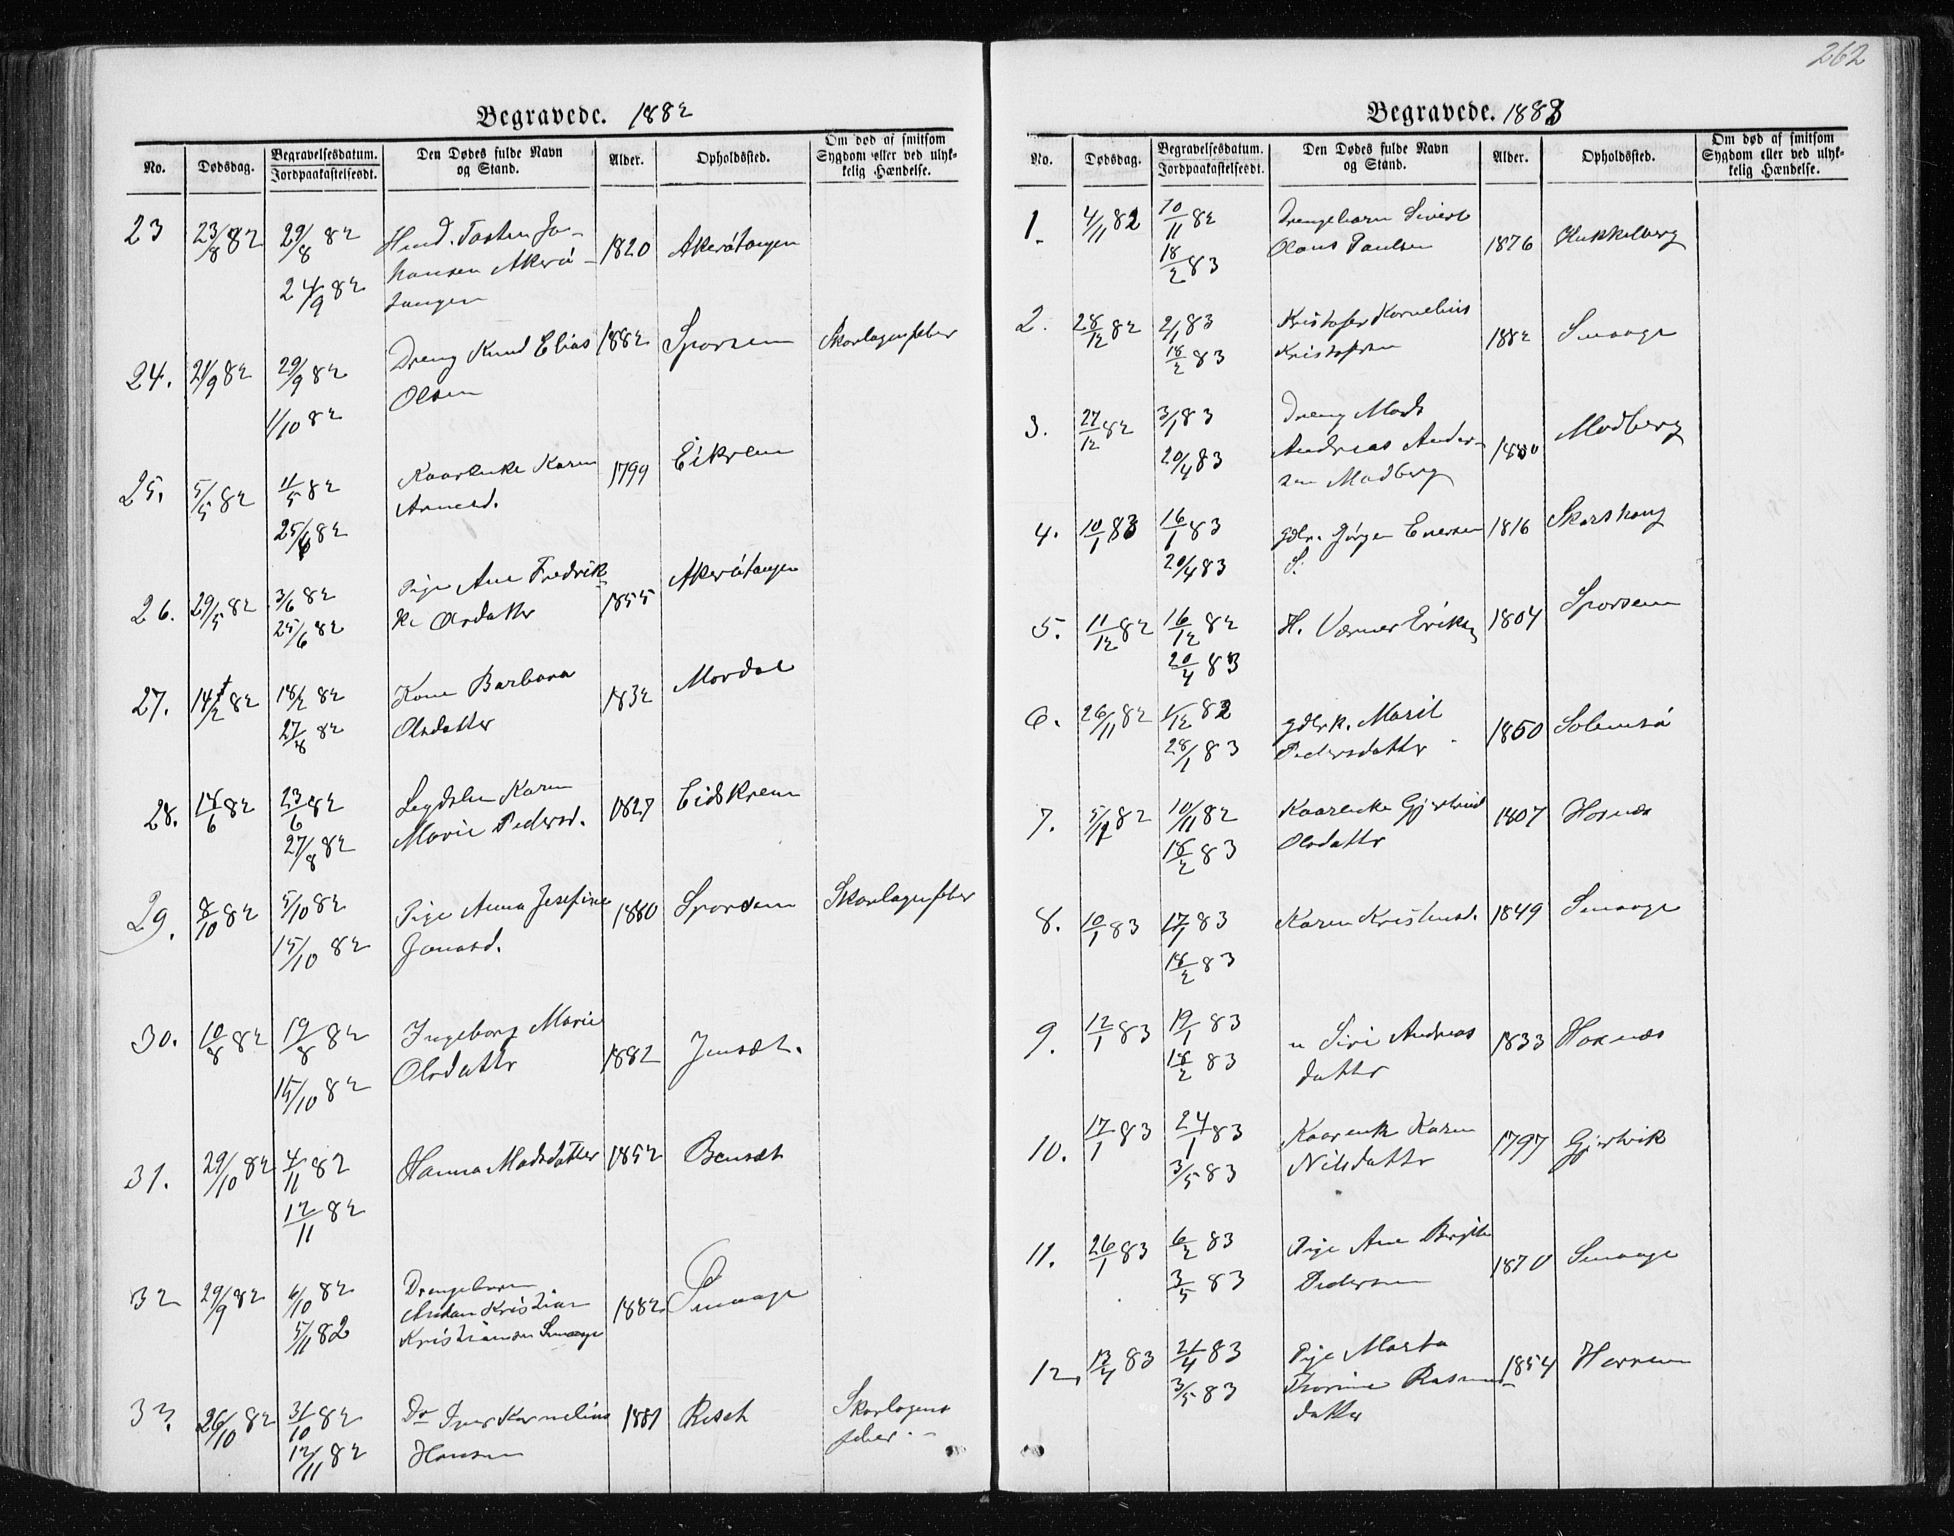 262
Begravede. 1882
No. Dødsdag. Begravelsesdatum. Jordpaakastelsesdt. Den Dødes fulde Navn og Stand. Alder. Opholdssted. Om død af smitsom Sygdom eller ved ulyk- kelig Hændelse.
23 23/8 82 29/8 82 Husd. Torsten Jo- 1820 Akerötangen
24/9 82 hansen Akerö-
tangen
24. 21/9 82 29/9 82 Dreng Knud Elias 1882 Sporsem Skarlagensfeber
1/10 82 Olsen
25. 5/5 82 11/5 82 Kaarenke Karen 1799 Eikrem
25/6 82 Arnesd.
26. 29/5 82 3/6 82 Pige Ane Fredrik- 1855 Akerötangen
25/6 82 ke Olsdatter
27. 14/2 82 18/2 82 Kone Barbara 1832 Mordal
27/8 82 Olsdatter
28. 14/6 82 23/6 82 Legdslem Karen 1827 Eidskrem
27/8 82 Marie Pedersd.
29. 8/10 82 5/10 82 Pige Anna Josefine 1880 Sporsem Skarlagensfeber
15/10 82 Jonasd.
30. 10/8 82 19/8 82 Ingeborg Marie 1882 Jensæt.
15/10 82 Olsdattr
31. 29/10 82 4/11 82 Hanna Madsdatter 1852 Bensæt
12/11 82
32 29/9 82 6/10 82 Drengebarn
Kristian 1882 Smaage
5/11 82 Kristiansen Smaage
33. 26/10 82 31/10 82 Dr Iver Kornelius 1881 Riset Skarlagens
12/11 82 Hansen feber.
Begravede. 1883
No. Dødsdag. Begravelsesdatum. Jordpaakastelsesdt. Den Dødes fulde Navn og Stand. Alder. Opholdssted. Om død af smitsom Sygdom eller ved ulyk- kelig Hændelse.
1. 4/11 82 10/11 82 Drengebarn Sivert
18/2 83 Olaus Paulsen 1876 Hukkelberg
2. 28/12 82 2/1 83 Kristofer Kornelius
18/2 83 Kristofersen 1882 Smaage
3. 27/12 82 3/1 83 Dreng Mads
20/4 83 Andreas Ander- 1880 Modberg
sen Modberg
4. 10/1 83 16/1 83 Gdbr. Jørgen Enersen 1816 Skarshaug
20/4 83 S.
5. 11/12 82 16/12 82 H. Værner Eriks 1804 Sporsem
20/4 83
6. 26/11 82 1/12 82 gdbrk. Marit
28/1 83 Pedersdattr 1850 Solemsö
7. 5/11 82 10/11 82 Kaarenke Gjertrud 1807 Hoxnæs
18/2 83 Olsdattr
8. 10/1 83 17/1 83 Karen Kristensd. 1849 Smaage
18/2 83
9. 12/1 83 19/1 83 " Siri Andreas 1833 Hoxnæs
18/2 83 datter
10. 17/1 83 24/1 83 Kaarenk Karen 1797 Gjertvik
3/5 83 Nilsdattr
11. 26/1 83 6/2 83 Pige Ane Birgitte 1870 Smaage
3/5 83 Pedersen
12. 13/4 83 21/4 83 Pige Marta 1854 Harrem
3/5 83 Thorine Rasmus-
datter